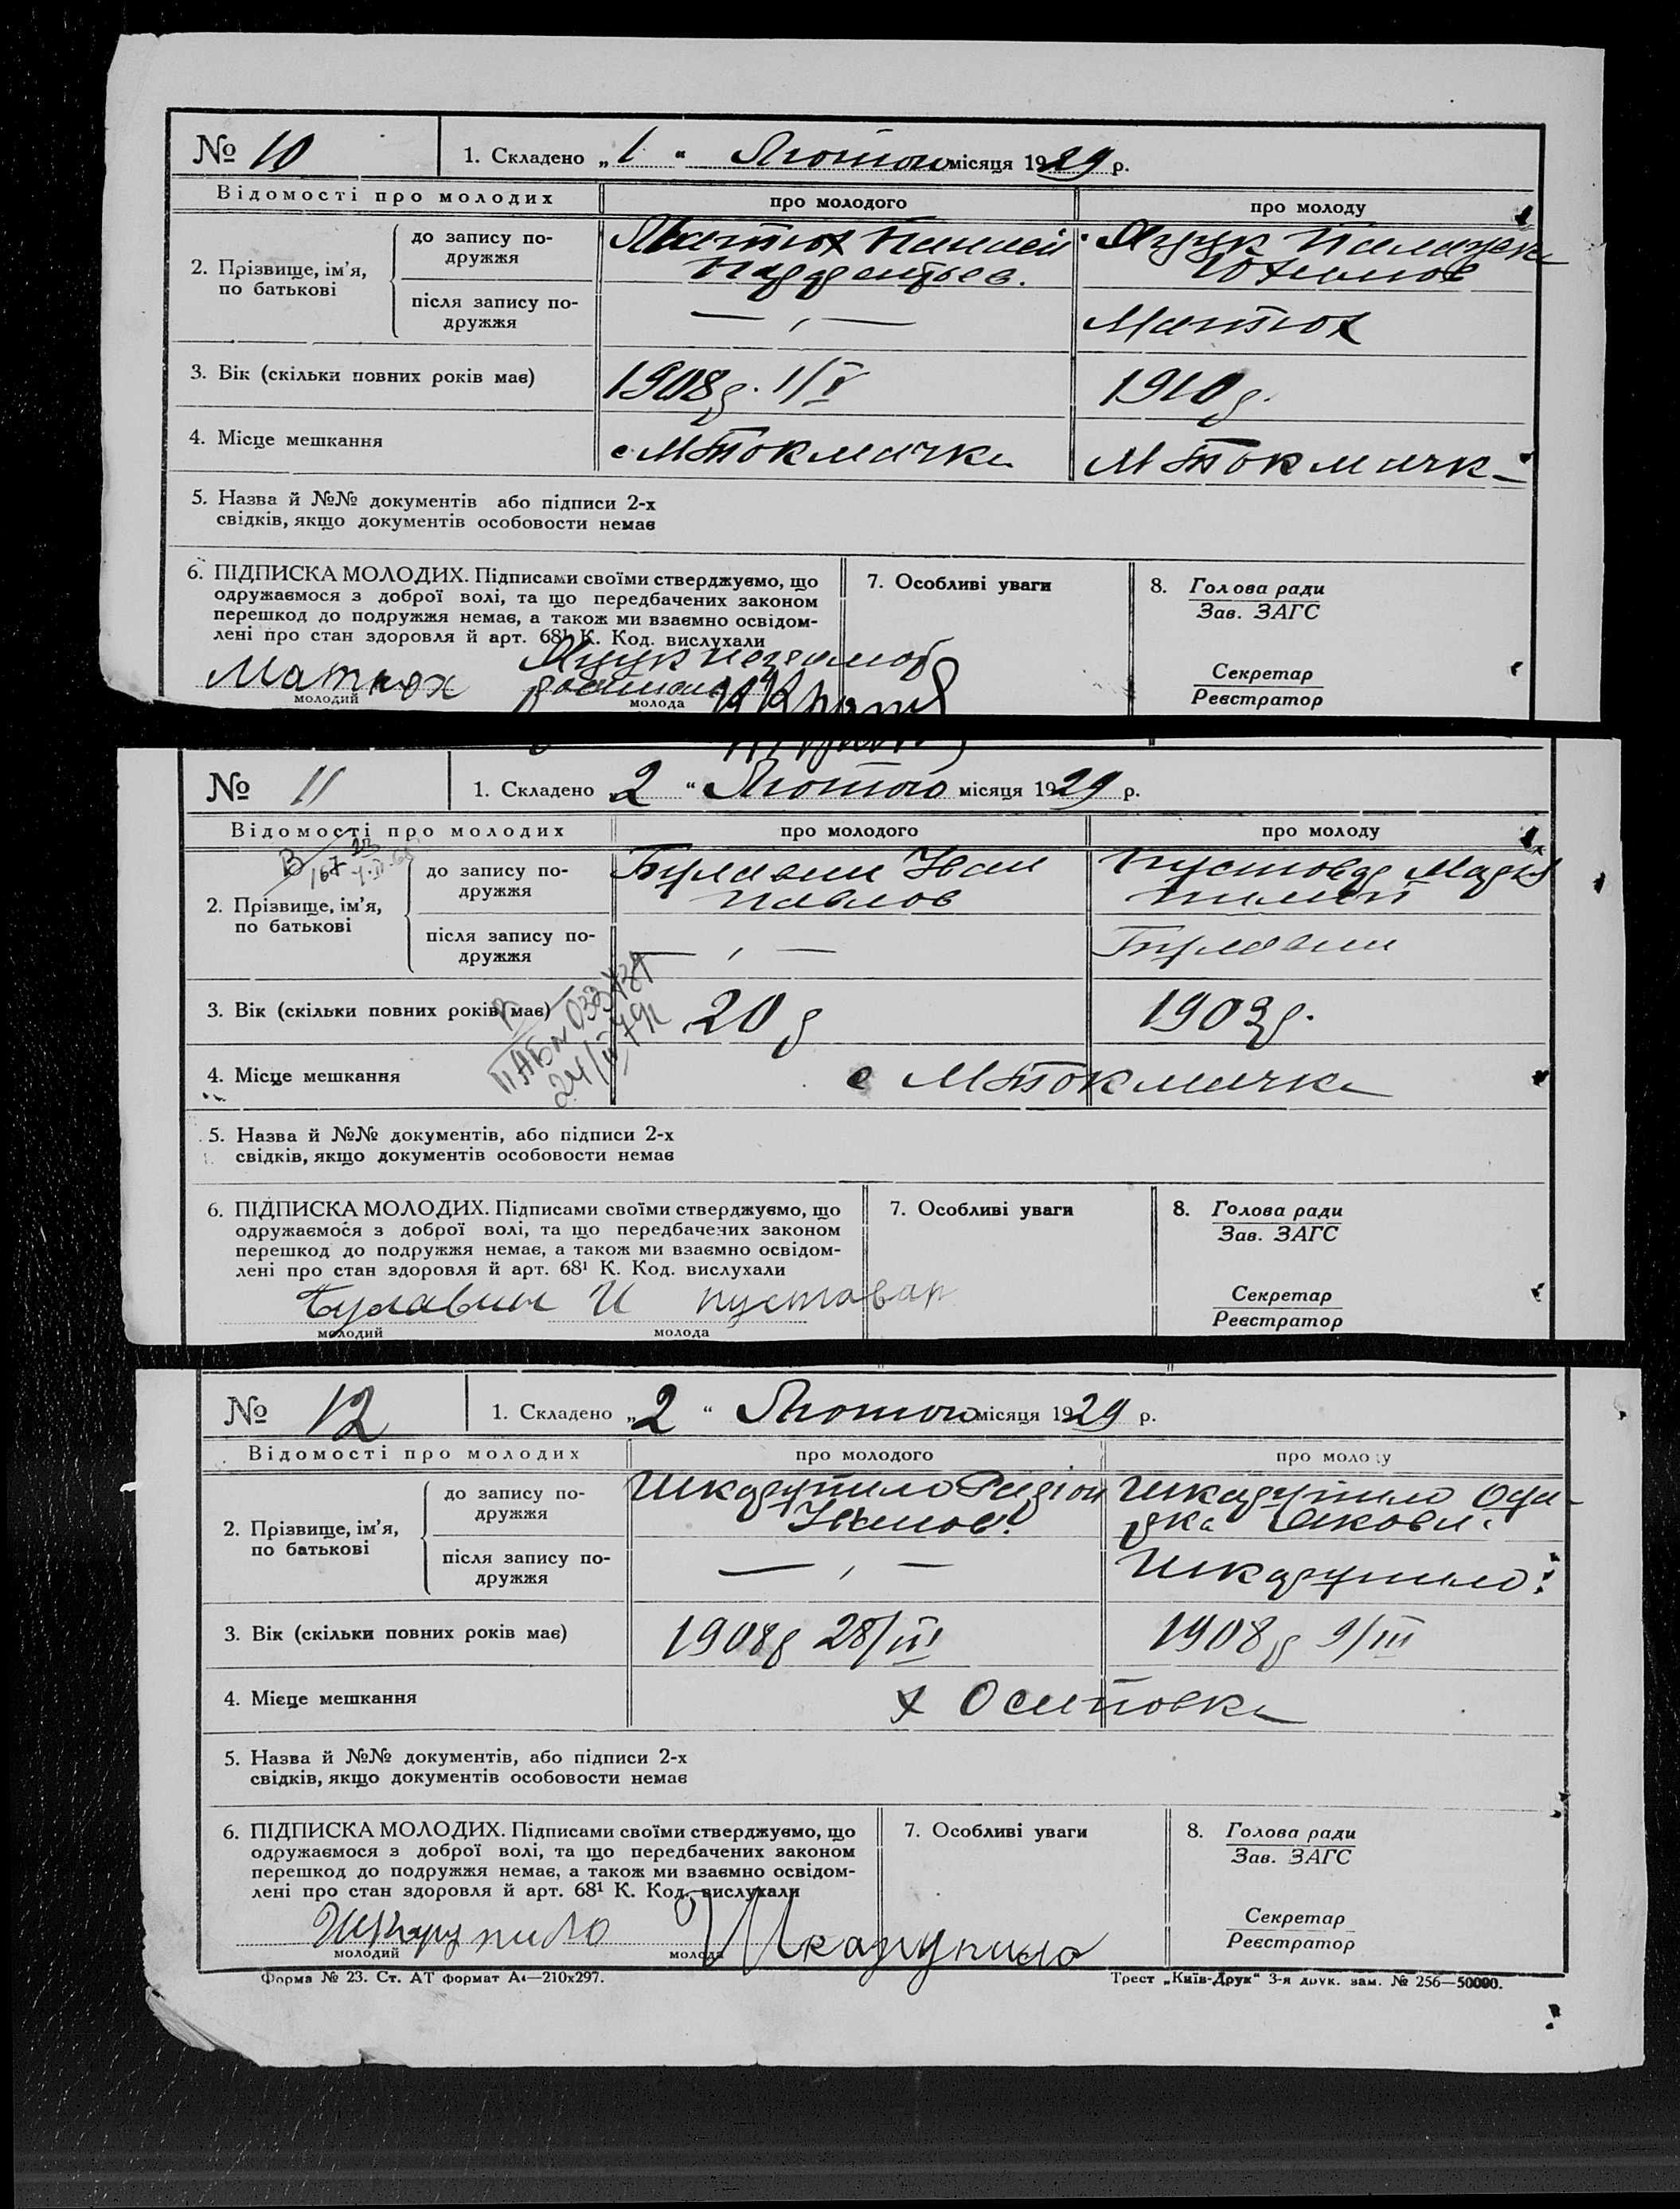 № 10 1. Складено „1“ Лютого місяця 1929 р.
Відомості про молодих про молодого про молоду
2. Прізвище, ім'я, по батькові
до запису подружжя
Матюх Яцук
після запису подружжя
— „ — Матюх
3. Вік (скільки повних років має) 1908 р. 1/V 1910 р.
4. Місце мешкання с МТокмачка МТокмачк
5. Назва й №№ документів або підписи 2-х
свідків, якщо документів особовости немає
6. ПІДПИСКА МОЛОДИХ. Підписами своїми стверджуємо, що
одружаємося з доброї волі, та що передбачених законом
перешкод до подружжя немає, а також ми взаємно освідом-
лені про стан здоровля й арт. 68¹ К. Код. вислухали
Матюх Яцук
молодий молода
7. Особливі уваги
8. Голова ради
Зав. ЗАГС
Секретар
Реєстратор
№ 11 1. Складено 2 “ Лютого місяця 1929 р.
Відомості про молодих про молодого про молоду
2. Прізвище, ім'я, по батькові
до запису подружжя
Булавин Іван Пустовар Мария
Павлов
після запису подружжя
— „ — Булавин
3. Вік (скільки повних років має) 20 р 1903 р.
4. Місце мешкання с МТокмачка
5. Назва й №№ документів, або підписи 2-х
свідків, якщо документів особовости немає
6. ПІДПИСКА МОЛОДИХ. Підписами своїми стверджуємо, що
одружаємося з доброї волі, та що передбачених законом
перешкод до подружжя немає, а також ми взаємно освідом-
лені про стан здоровля й арт. 68¹ К. Код. вислухали
Булавин И пустовар
молодий молода
7. Особливі уваги
8. Голова ради
Зав. ЗАГС
Секретар
Реєстратор
№ 12 1. Складено „2“ Лютого місяця 1929 р.
Відомості про молодих про молодого про молоду
2. Прізвище, ім'я, по батькові
до запису подружжя
Шкарупило Радіон Шкарупило Ода-
Іванов. рка Яковл.
після запису подружжя
— „ — Шкарупило
3. Вік (скільки повних років має) 1908 р 28/III 1908 р 9/III
4. Місце мешкання х Осиповка
5. Назва й №№ документів, або підписи 2-х
свідків, якщо документів особовости немає
6. ПІДПИСКА МОЛОДИХ. Підписами своїми стверджуємо, що
одружаємося з доброї волі, та що передбачених законом
перешкод до подружжя немає, а також ми взаємно освідом-
лені про стан здоровля й арт. 68¹ К. Код. вислухали
Шкарупило Шкарупило
молодий молода
7. Особливі уваги
8. Голова ради
Зав. ЗАГС
Секретар
Реєстратор
Форма № 23. Ст. АТ формат А4—210х297. Трест „Київ-Друк“ 3-я друк. зам. № 256—50000.